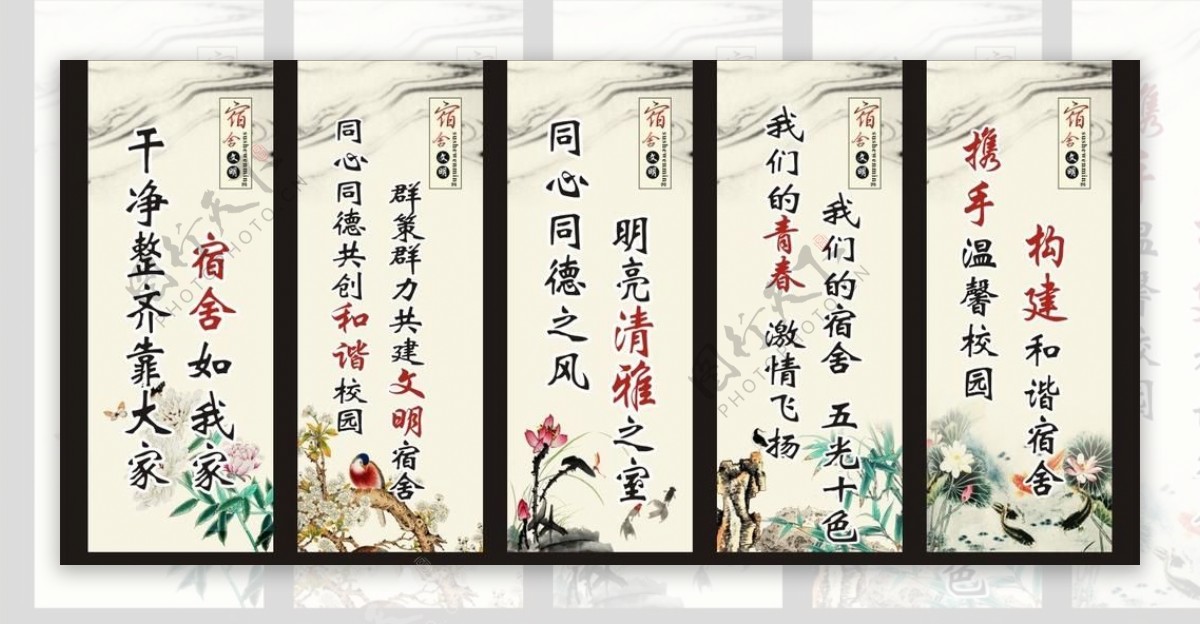 宿舍文明
sushewenming
宿舍如我家
干净整齐靠大家
宿舍文明
sushewenming
群策群力共建文明宿舍
同心同德共创和谐校园
宿舍文明
sushewenming
明亮清雅之室
同心同德之风
宿舍文明
sushewenming
我们的青春 激情飞扬
我们的宿舍 五光十色
宿舍文明
sushewenming
构建和谐宿舍
携手温馨校园
图行天下
PHOTOPHOTO.CN